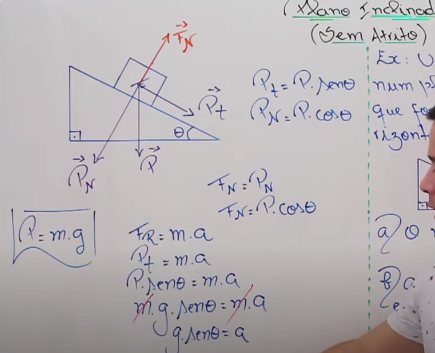 Plano Inclinado
(Sem Atrito)
F⃗N
P⃗t
θ
P⃗N
P⃗
Pt = P. senθ
PN = P. cosθ
FN = PN
FN = P. cosθ
P = m.g
FR = m.a
Pt = m.a
P. senθ = m.a
m.g. senθ = m.a
g. senθ = a
Ex: U
num pl
que fo
rizont
a) O
b) a